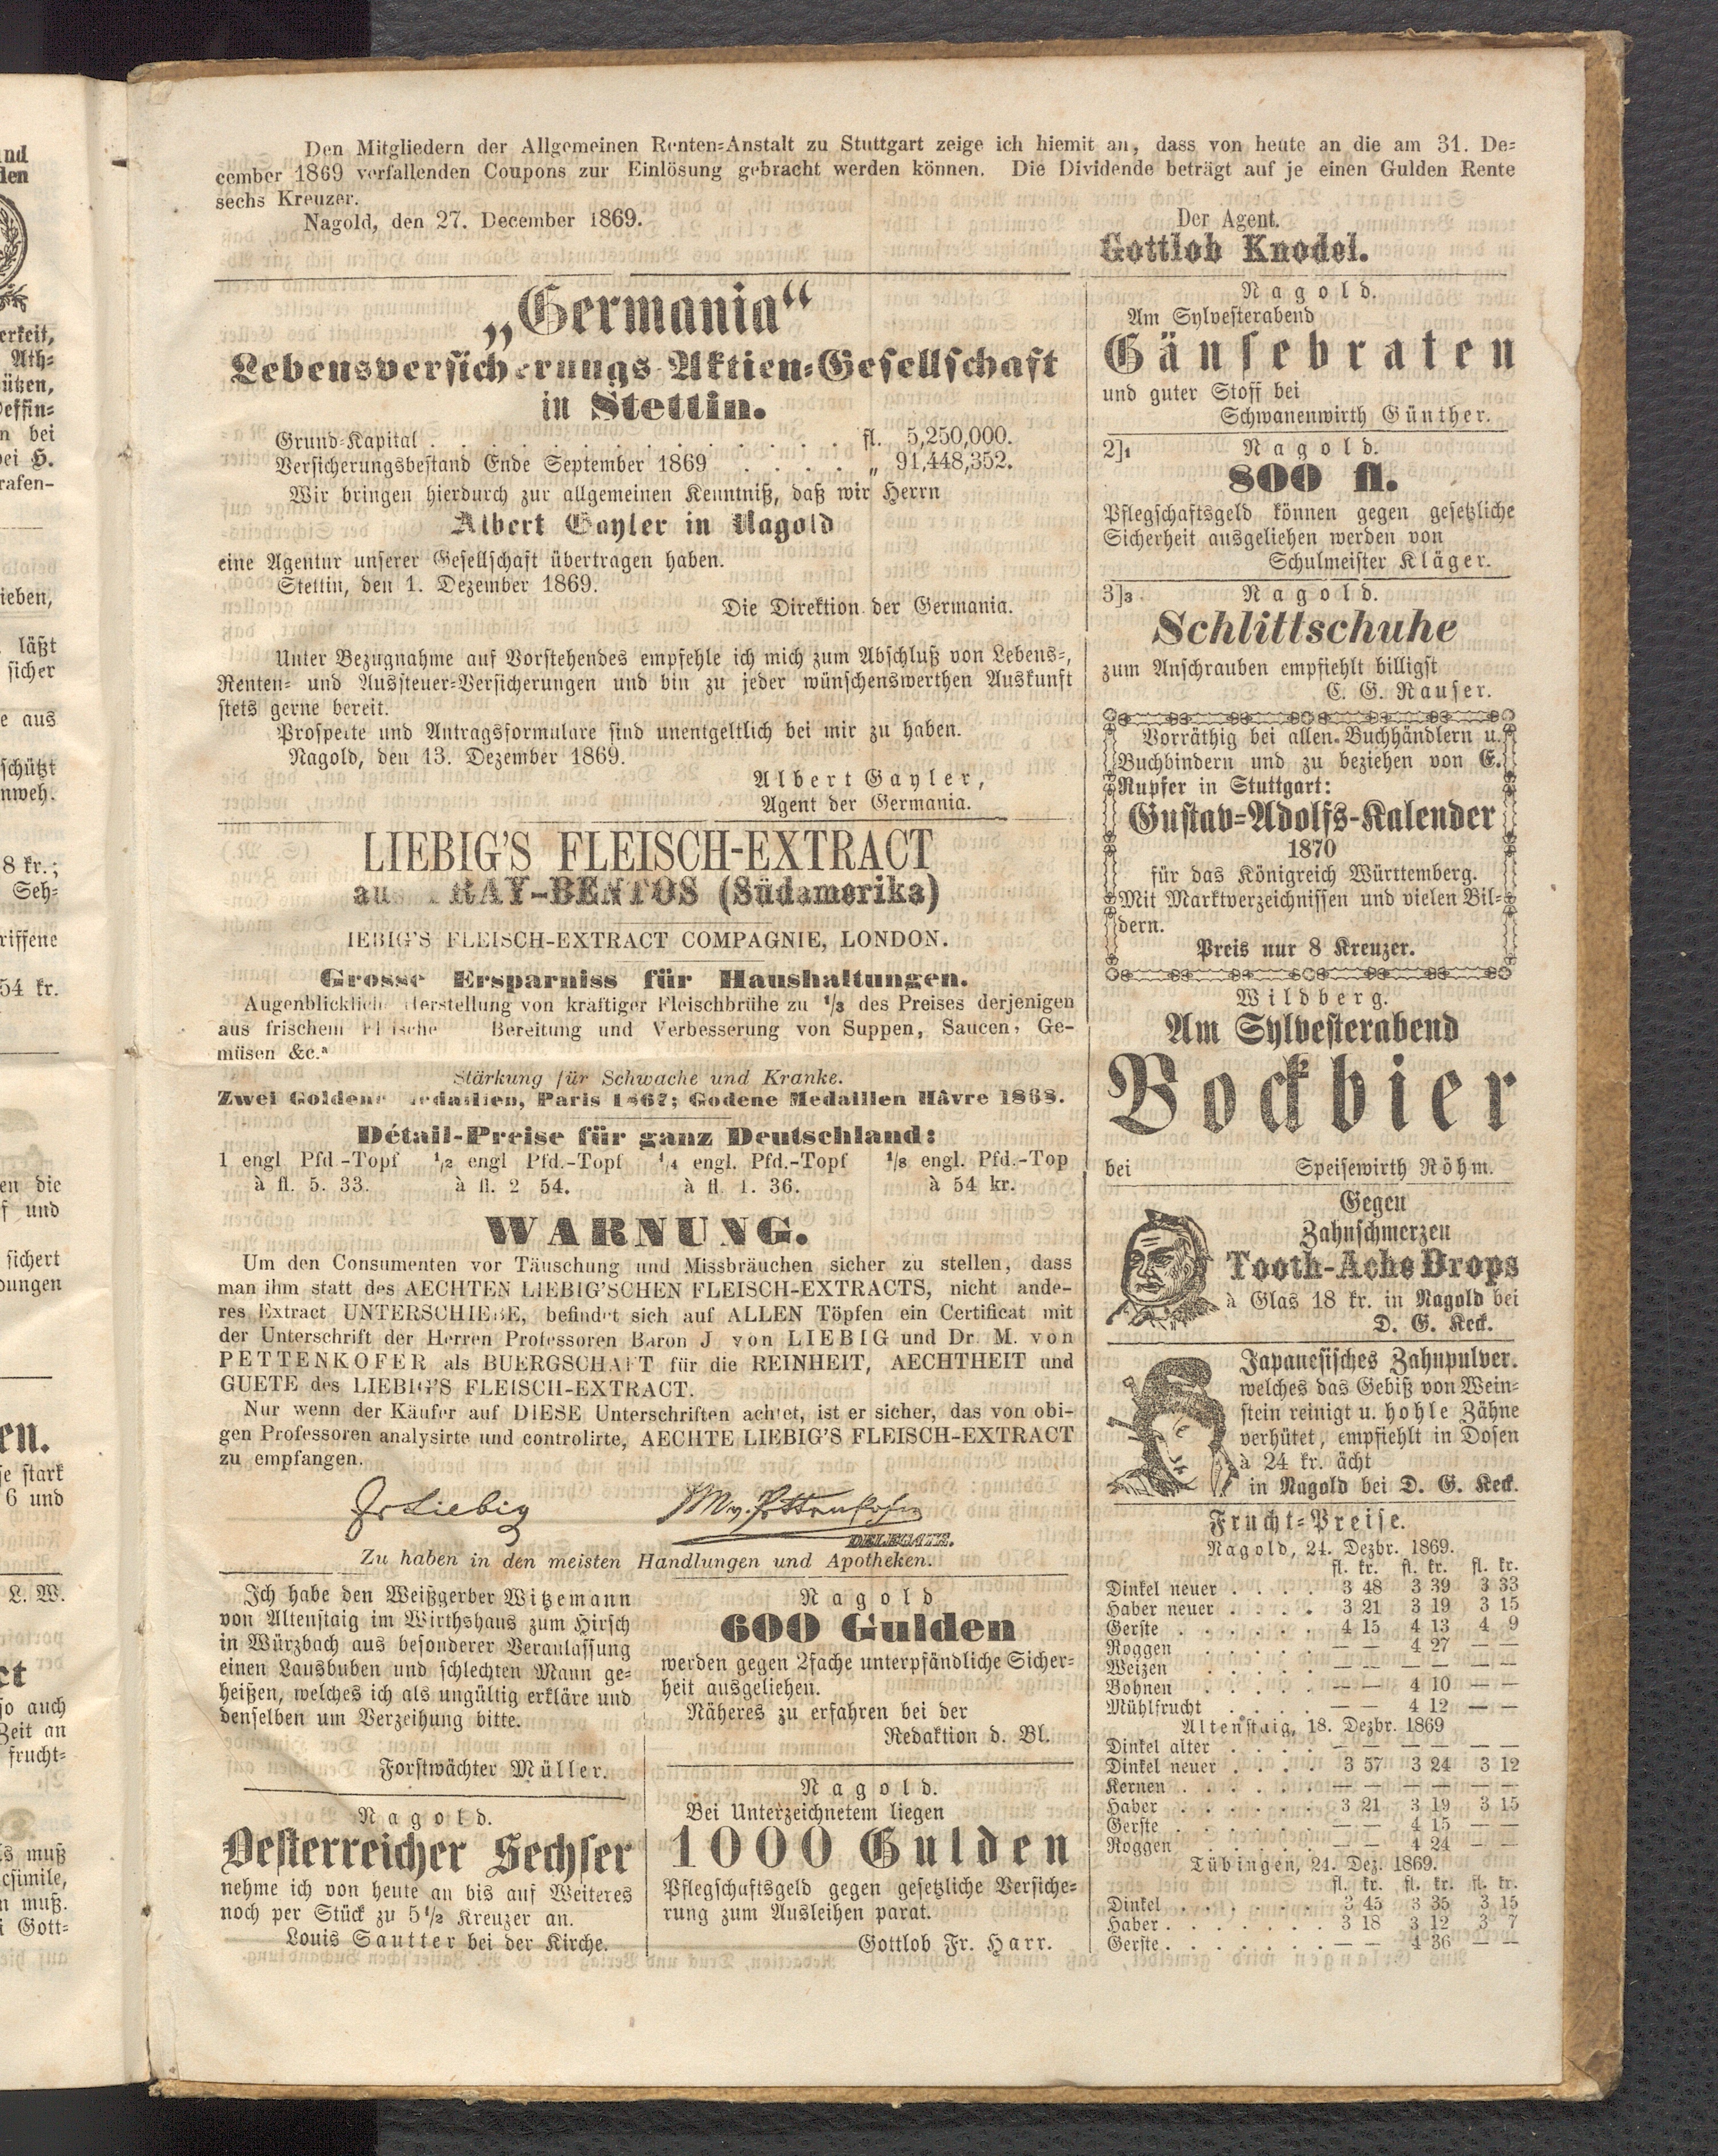 Den Mitgliedern der Allgemeinen Renten-Anstalt zu Stuttgart zeige ich hiemit an, dass von heute an die am 31. De-
cember 1869 verfallenden Coupons zur Einlösung gebracht werden können. Die Dividende beträgt auf je einen Gulden Rente
sechs Kreuzer.
Nagold, den 27. December 1869.
Der Agent.
Gottlob Knodel.
„Germania“
Lebensversicherungs-Aktien-Gesellschaft
in Stettin.
Grund-Kapital . . . . fl. 5,250,000.
Versicherungsbestand Ende September 1869 . . . . „ 91,448,352.
Wir bringen hierdurch zur allgemeinen Kenntniß, daß wir Herrn
Albert Gayler in Nagold
eine Agentur unserer Gesellschaft übertragen haben.
Stettin, den 1. Dezember 1869.
Die Direktion der Germania.
Unter Bezugnahme auf Vorstehendes empfehle ich mich zum Abschluß von Lebens-,
Renten- und Aussteuer-Versicherungen und bin zu jeder wünschenswerthen Auskunft
stets gerne bereit.
Prospekte und Antragsformulare sind unentgeltlich bei mir zu haben.
Nagold, den 13. Dezember 1869.
Albert Gayler,
Agent der Germania.
LIEBIG'S FLEISCH-EXTRACT
aus FRAY-BENTOS (Südamerika)
LIEBIG'S FLEISCH-EXTRACT COMPAGNIE, LONDON.
Grosse Ersparniss für Haushaltungen.
Augenblickliche Herstellung von kräftiger Fleischbrühe zu 1/3 des Preises derjenigen
aus frischem Fleische Bereitung und Verbesserung von Suppen, Saucen, Ge-
müsen &c.ª
Stärkung für Schwache und Kranke.
Zwei Goldene Medaillen, Paris 1867; Godene Medaillen Hâvre 1868.
Détail-Preise für ganz Deutschland:
1 engl Pfd-Topf 1/2 engl Pfd.-Topf 1/4 engl. Pfd.-Topf 1/8 engl. Pfd.-Top
à fl. 5. 33. à fl. 2 54. à fl. 1. 36. à 54 kr.
WARNUNG.
Um den Consumenten vor Täuschung und Missbräuchen sicher zu stellen, dass
man ihm statt des AECHTEN LIEBIG'SCHEN FLEISCH-EXTRACTS, nicht ande-
res Extract UNTERSCHIEBE, befindet sich auf ALLEN Töpfen ein Certificat mit
der Unterschrift der Herren Professoren Baron J von LIEBIG und Dr. M. von
PETTENKOFER als BUERGSCHAFT für die REINHEIT, AECHTHEIT und
GUETE des LIEBIG'S FLEISCH-EXTRACT.
Nur wenn der Käufer auf DIESE Unterschriften achtet, ist er sicher, das von obi-
gen Professoren analysirte und controlirte, AECHTE LIEBIG'S FLEISCH-EXTRACT
zu empfangen.
Liebig M. v. Pettenkofer
DELEGATE.
Zu haben in den meisten Handlungen und Apotheken.
Ich habe den Weißgerber Witzemann
von Altenstaig im Wirthshaus zum Hirsch
in Würzbach aus besonderer Veranlassung
einen Lausbuben und schlechten Mann ge-
heißen, welches ich als ungültig erkläre und
denselben um Verzeihung bitte.
Forstwächter Müller.
Nagold.
Oesterreicher Sechser
nehme ich von heute an bis auf Weiteres
noch per Stück zu 5 1/2 Kreuzer an.
Louis Sautter bei der Kirche.
Nagold
600 Gulden
werden gegen 2fache unterpfändliche Sicher-
heit ausgeliehen.
Näheres zu erfahren bei der
Redaktion d. Bl.
Nagold.
Bei Unterzeichnetem liegen
1000 Gulden
Pflegschaftsgeld gegen gesetzliche Versiche-
rung zum Ausleihen parat.
Gottlob Fr. Harr.
Nagold.
Am Sylvesterabend
Gänsebraten
und guter Stoff bei
Schwanenwirth Günther.
2]1 Nagold.
800 fl.
Pflegschaftsgeld können gegen gesetzliche
Sicherheit ausgeliehen werden von
Schulmeister Kläger.
3]3 Nagold.
Schlittschuhe
zum Anschrauben empfiehlt billigst
C. G. Rauser.
Vorräthig bei allen Buchhändlern u.
Buchbindern und zu beziehen von E.
Rupfer in Stuttgart:
Gustav-Adolfs-Kalender
1870
für das Königreich Württemberg.
Mit Marktverzeichnissen und vielen Bil-
dern.
Preis nur 8 Kreuzer.
Wildberg.
Am Sylvesterabend
Bockbier
bei Speisewirth Röhm.
Gegen
Zahnschmerzen
Tooth-Ache Drops
à Glas 18 kr. in Nagold bei
D. G. Keck.
Japanesisches Zahnpulver.
welches das Gebiß von Wein-
stein reinigt u. hohle Zähne
verhütet, empfiehlt in Dosen
à 24 kr. ächt
in Nagold bei D. G. Keck.
Frucht-Preise.
Nagold, 24. Dezbr. 1869.
fl. kr. fl. kr. fl. kr.
Dinkel neuer . . . . 3 48 3 39 3 33
Haber neuer . . . . 3 21 3 19 3 15
Gerste . . . . . . 4 15 4 13 4 9
Roggen . . . . . — — 4 27 — —
Weizen . . . . . — — — — — —
Bohnen . . . . . — — 4 10 — —
Mühlfrucht . . . . — — 4 12 — —
Altenstaig, 18. Dezbr. 1869
Dinkel alter . . . . — — — — — —
Dinkel neuer . . . . 3 57 3 24 3 12
Kernen . . . . . . — — — — — —
Haber . . . . . . 3 21 3 19 3 15
Gerste . . . . . . — — 4 15 — —
Roggen . . . . . — — 4 24 — —
Tübingen, 24. Dez. 1869.
fl. kr. fl. kr. fl. kr.
Dinkel . . . . . . 3 45 3 35 3 15
Haber . . . . . . . 3 18 3 12 3 7
Gerste . . . . . . . — — 4 36 — —